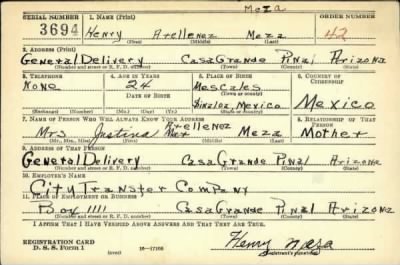 Meza
SERIAL NUMBER 1. NAME (Print) ORDER NUMBER
3694 Henry Arellenez Meza 42
(First) (Middle) (Last)
2. ADDRESS (Print)
General Delivery Casa Grande Pinal Arizona
(Number and street or R. F. D. number) (Town) (County) (State)
3. TELEPHONE 4. AGE IN YEARS 5. PLACE OF BIRTH 6. COUNTRY OF CITIZENSHIP
None 24 Mescales Mexico
DATE OF BIRTH (Town or county)
Sinaloa, Mexico
(Exchange) (Number) (Mo.) (Day) (Yr.) (State or country)
7. NAME OF PERSON WHO WILL ALWAYS KNOW YOUR ADDRESS 8. RELATIONSHIP OF THAT PERSON
Arellenez
Mrs Justina Meza Mother
(Mr., Mrs., Miss) (First) (Middle) (Last)
9. ADDRESS OF THAT PERSON
General Delivery Casa Grande Pinal Arizona
(Number and street or R. F. D. number) (Town) (County) (State)
10. EMPLOYER'S NAME
City Transfer Company
11. PLACE OF EMPLOYMENT OR BUSINESS
Box 1111 Casa Grande Pinal Arizona
(Number and street or R. F. D. number) (Town) (County) (State)
I AFFIRM THAT I HAVE VERIFIED ABOVE ANSWERS AND THAT THEY ARE TRUE.
REGISTRATION CARD
D. S. S. Form 1 (over) 16-17105 Henry Meza
(Registrant's signature)